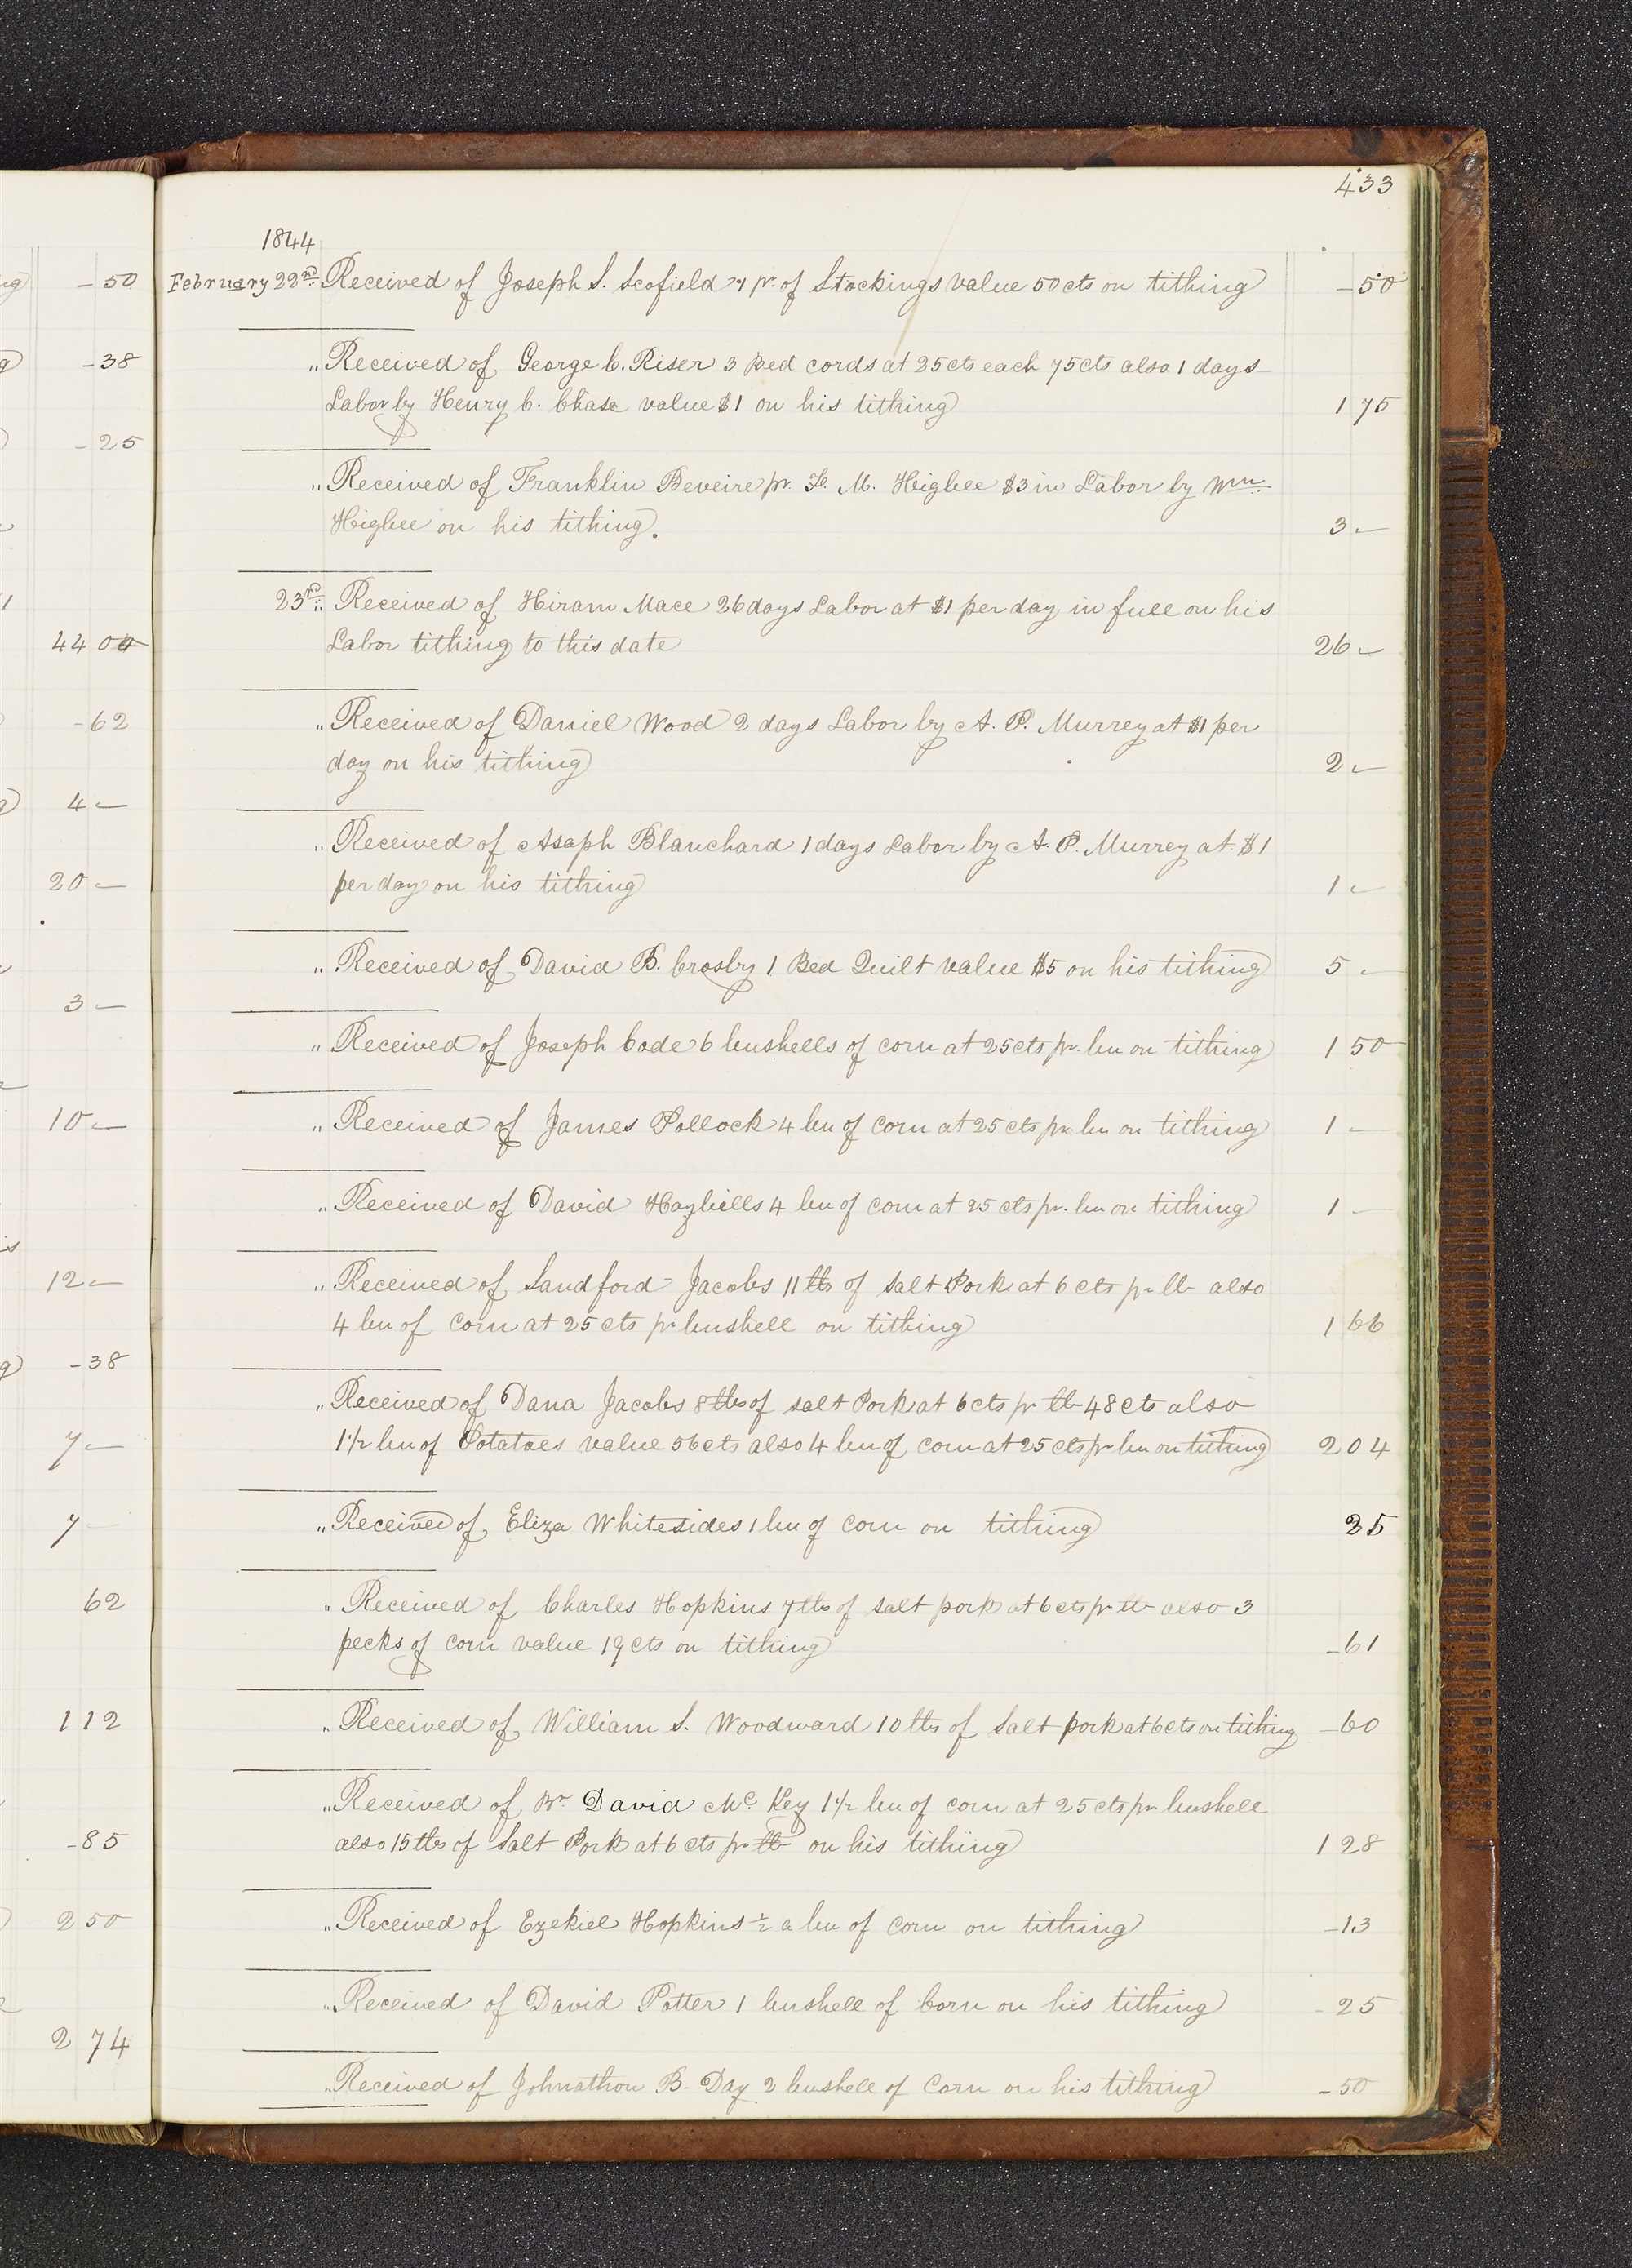 433
1844
February 22nd. Received of Joseph S. Scofield 1 pr. of Stockings value 50 cts on tithing -50
" Received of George C. Riser 3 Bed cords at 25 cts each 75 cts also 1 days
Labor by Henry C. Chase value $1 on his tithing 1 75
" Received of Franklin Beveire pr. F. M. Higbee $3 in Labor by Wm.
Higbee on his tithing. 3 -
23rd " Received of Hiram Mace 26 days Labor at $1 per day in full on his
Labor tithing to this date 26 -
" Received of Daniel Wood 2 days Labor by A. P. Murrey at $1 per
day on his tithing 2 -
" Received of Asaph Blanchard 1 days Labor by A. P. Murrey at $1
per day on his tithing 1 -
" Received of David B. Crosby 1 Bed Quilt value $5 on his tithing 5 -
" Received of Joseph Code 6 bushells of corn at 25 cts pr. bu on tithing 1 50
" Received of James Pollock 4 bu of corn at 25 cts pr. bu on tithing 1 -
" Received of David 4 bu of corn at 25 cts pr. bu on tithing 1 -
" Received of Sandford Jacobs 11 lbs of Salt Pork at 6 cts pr lb also
4 bu of Corn at 25 cts pr bushell on tithing 1 66
" Received of Dana Jacobs 8 lbs of salt Pork at 6 cts pr lb 48 cts also
1 1/2 bu of Potatoes value 56 cts also 4 bu of corn at 25 cts pr bu on tithing 2 04
" Received of Eliza Whitesides 1 bu of corn on tithing 25
" Received of Charles Hopkins 7 lbs of salt pork at 6 cts pr lb also 3
pecks of corn value 19 cts on tithing -61
" Received of William S. Woodward 10 lbs of Salt pork at 6 cts on tithing -60
" Received of Br. David Mc. Key 1 1/2 bu of corn at 25 cts pr. bushell
also 15 lbs of Salt Pork at 6 cts pr lb on his tithing 1 28
" Received of Ezekiel Hopkins 1/2 a bu of corn on tithing -13
" Received of David Potter 1 bushell of Corn on his tithing -25
" Received of Johnathon B. Day 2 bushell of Corn on his tithing -50
-50
-38
-25
44 00
-62
4 -
20 -
3 -
10 -
12 -
-38
7 -
7 -
62
1 12
-85
2 50
2 74